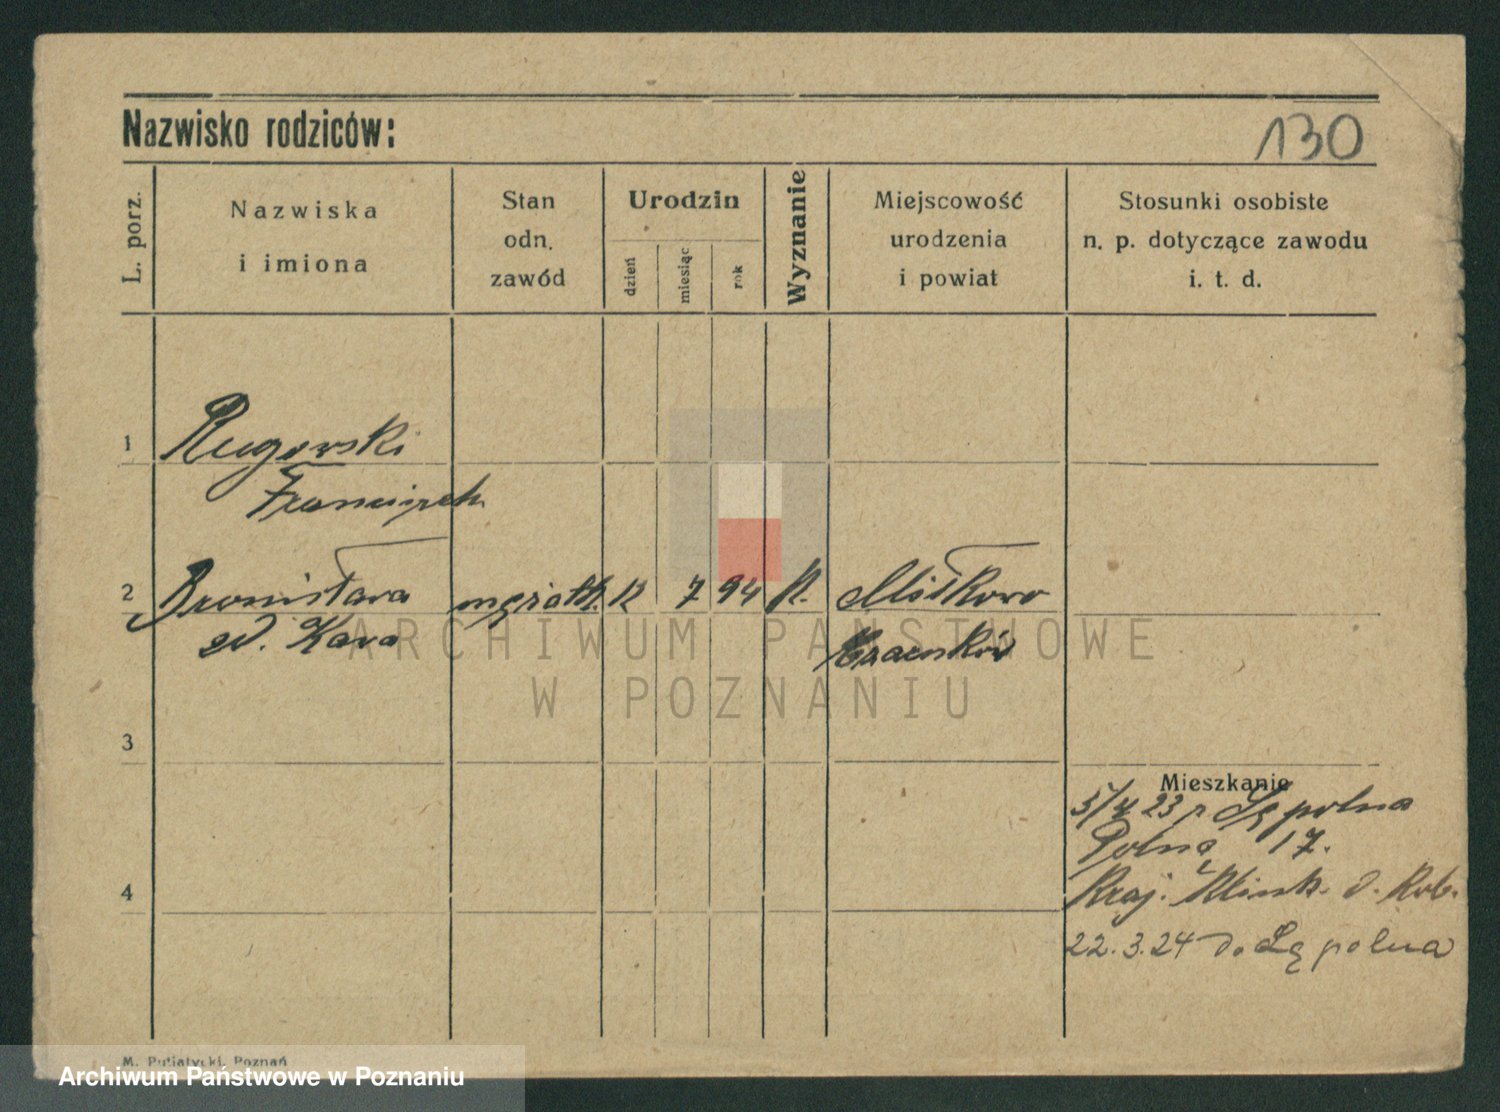 Nazwisko rodziców:
130
L. porz.
Nazwiska
i imiona
Stan
odn.
zawód
Urodzin
dzień
miesiąc
rok
Wyznanie
Miejscowość
urodzenia
i powiat
Stosunki osobiste
n. p. dotyczące zawodu
i. t. d.
1
Franciszek
2 Bronisława mężatk. 12 7 94 K. Miłkowo
Czarnków
3
Mieszkanie
5/4 23
Polna 17.
4
22.3.24 do
M. Putiatycki, Poznań
ARCHIWUM PAŃSTWOWE
W POZNANIU
Archiwum Państwowe w Poznaniu